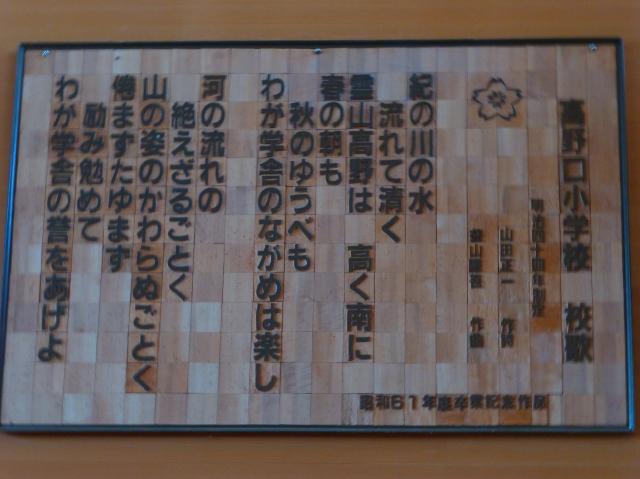 高野口小学校 校歌
山田正一 作詞
作曲
紀の川の水
流れて清く
霊山高野は 高く南に
春の朝も
秋のゆうべも
わが学舎のながめは楽し
河の流れの
絶えざるごとく
山の姿のかわらぬごとく
倦まずたゆまず
励み勉めて
わが学舎の誉をあげよ
昭和61年度卒業記念作品